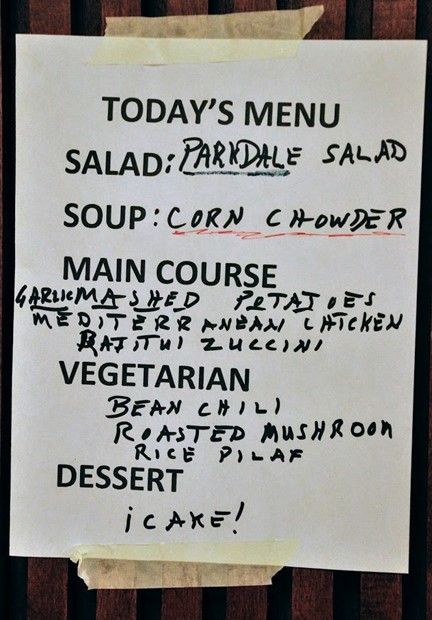 TODAY'S MENU
SALAD: PARKDALE SALAD
SOUP: CORN CHOWDER
MAIN COURSE
GARLIC MASHED POTATOES
MEDITERRANEAN CHICKEN
RATITUI ZUCCINI
VEGETARIAN
BEAN CHILI
ROASTED MUSHROOM
RICE PILAF
DESSERT
¡CAKE!